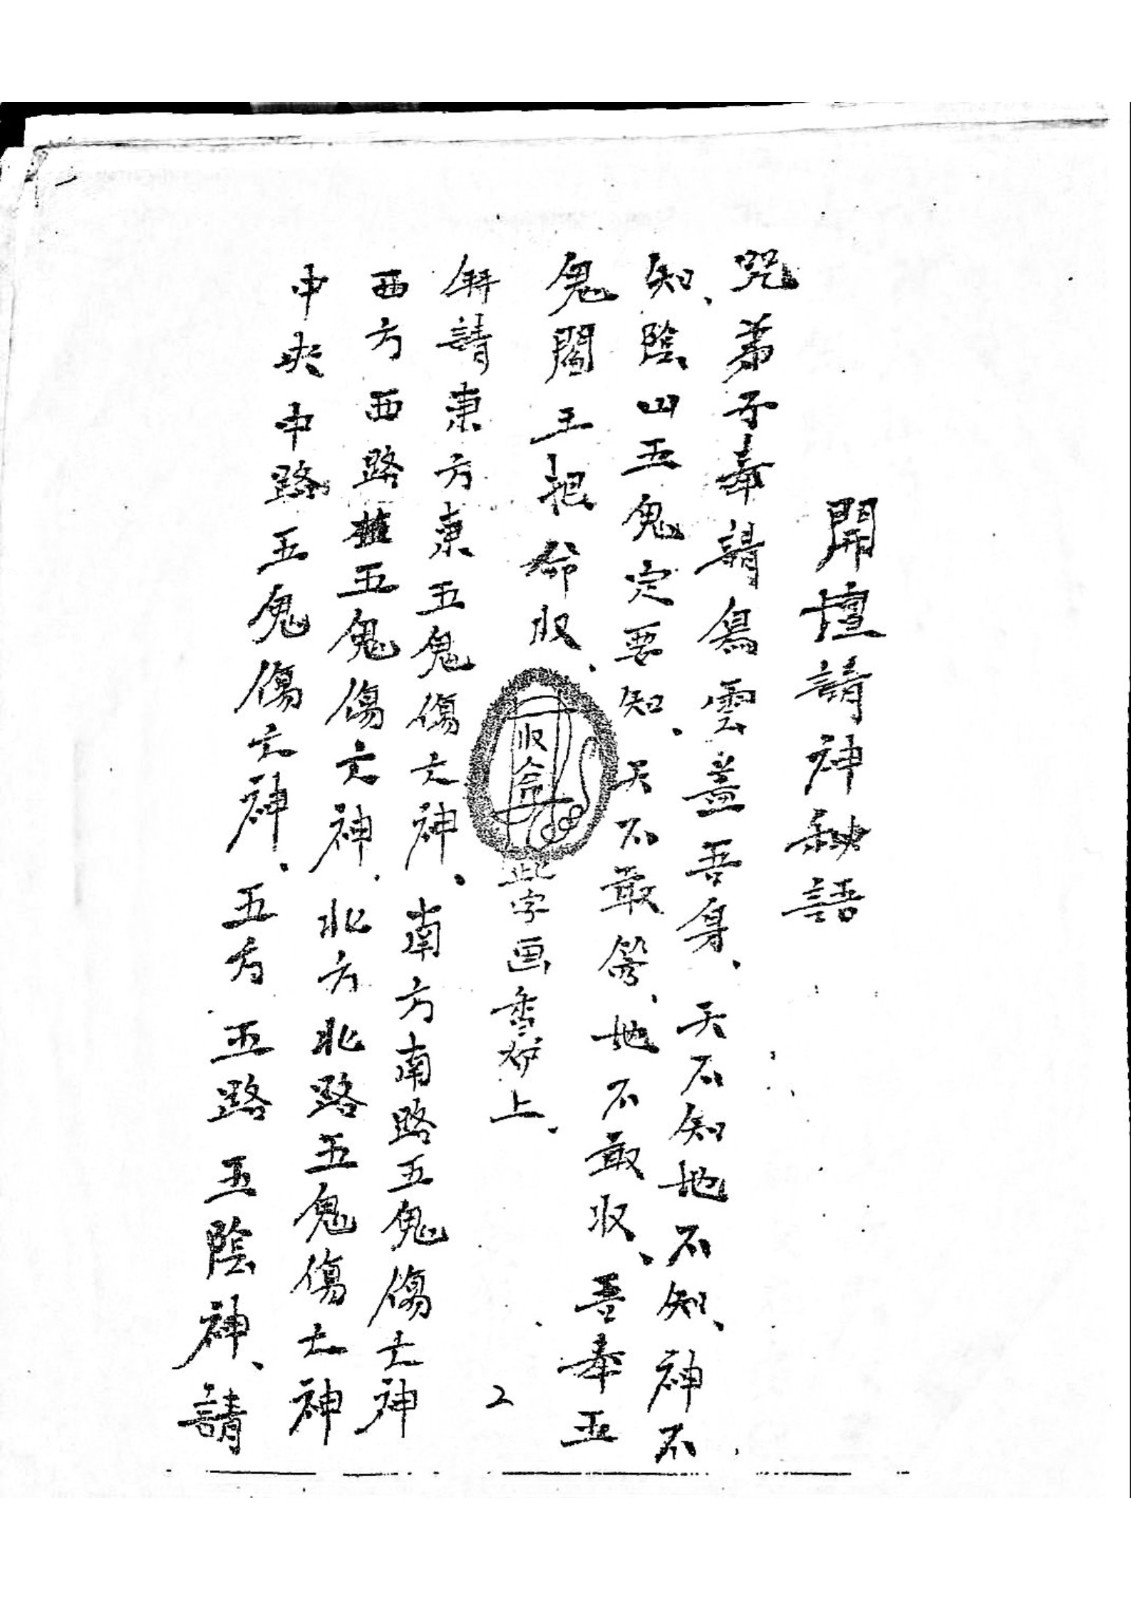 開壇請神秘語
咒弟子奉請烏雲蓋吾身、天不知地不知、神不
知、陰山五鬼定要知、天不敢答、地不敢收、吾奉五
鬼閻王把命收、
收命
此字画香炉上、
2
拜請東方東五鬼傷亡神、南方南路五鬼傷亡神
西方西路五鬼傷亡神、北方北路五鬼傷亡神
中央中路五鬼傷亡神、五方五路五陰神、請